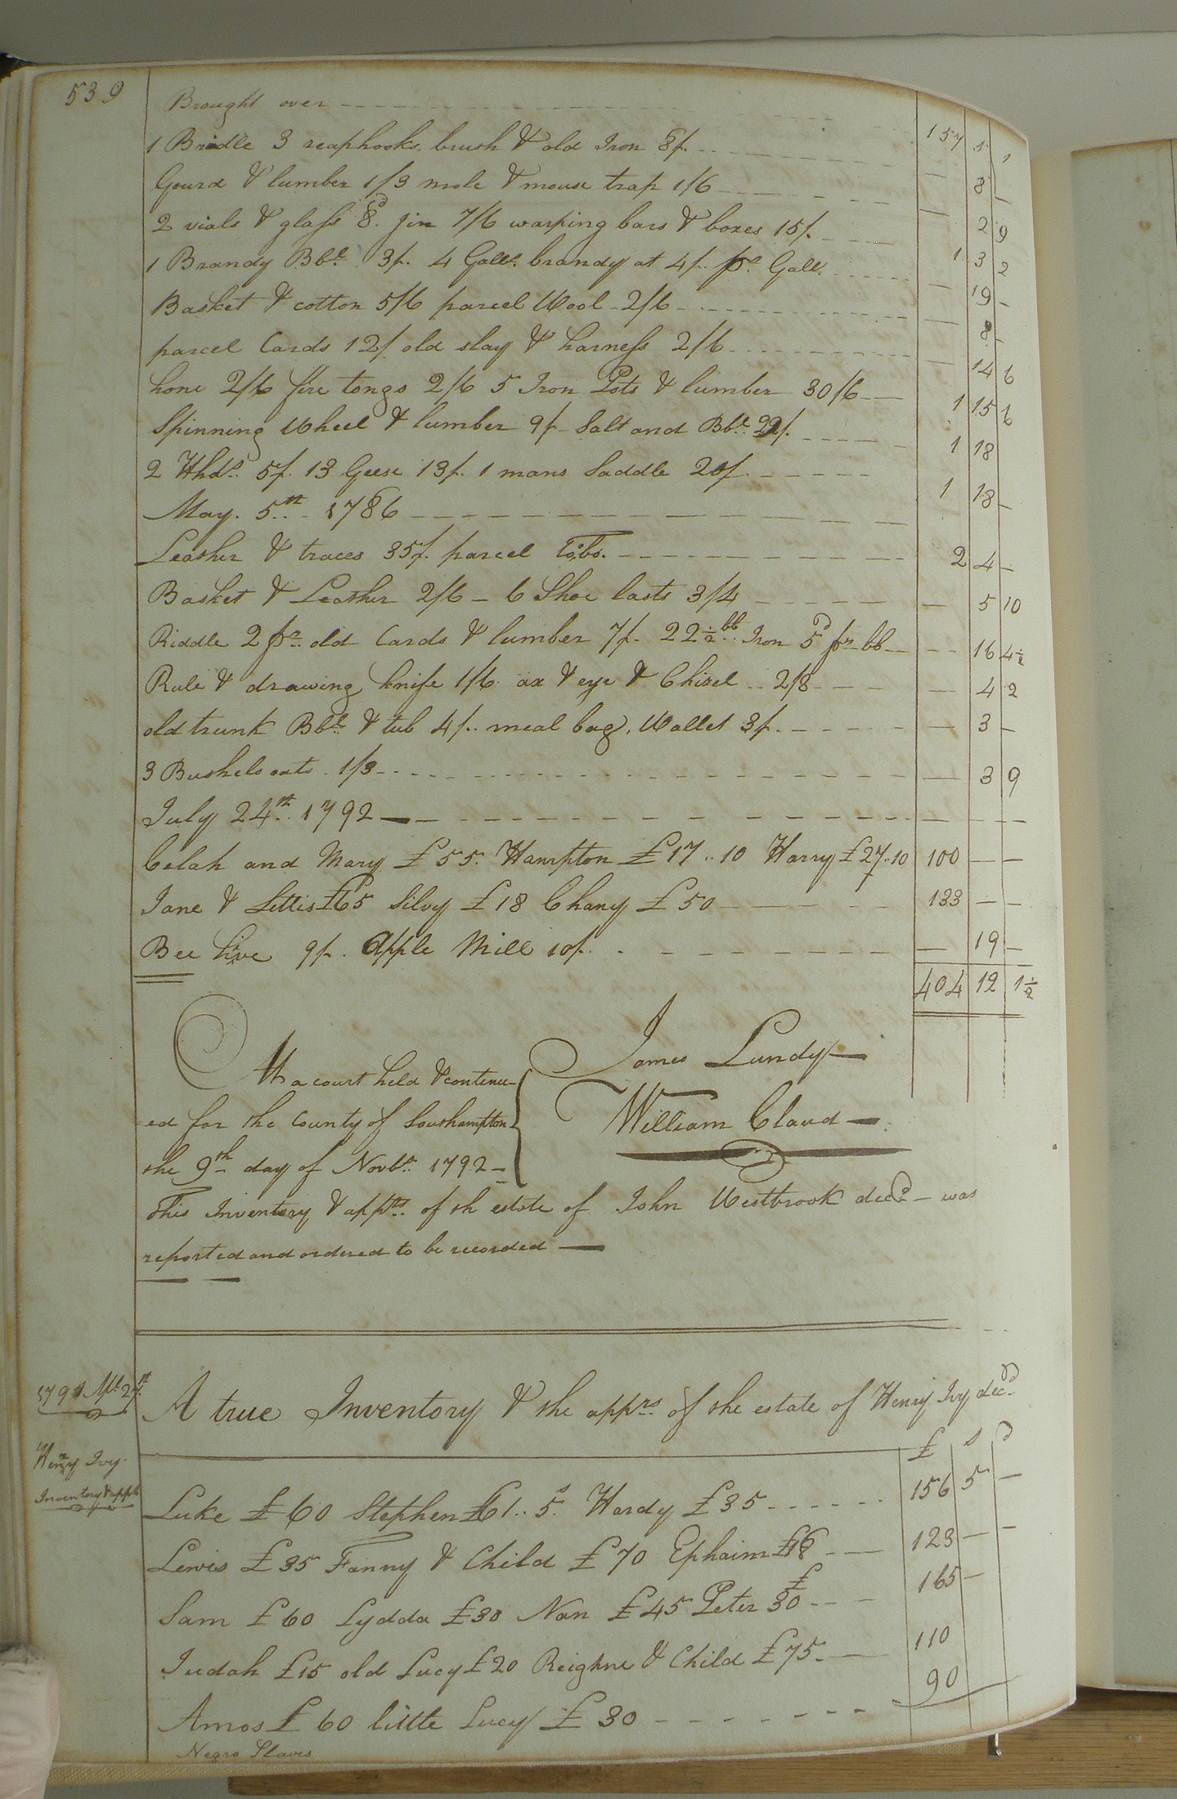 539
Brought over 157 1 1
1 Bridle 3 reaphooks, brush & old Iron 8/. — 8 —
Gourd & lumber 1/3 mole & mouse trap 1/6 — 2 9
2 vials & glass 8d. Jin 7/6 warping bars & boxes 15/. 1 3 2
1 Brandy Bbl. 3/. 4 Galls. brandy at 4/. pr. Gall. — 19 —
Basket & cotton 5/6 parcel Wool 2/6 — 8 —
parcel Cards 12/ old slay & harness 2/6 — 14 6
hone 2/6 fire tongs 2/6 5 Iron Pots & lumber 30/6 1 15 6
Spinning Wheel & lumber 9/. Salt and Bbl. 29/. 1 18
2 Hhds. 5/. 13 Geese 13/. 1 mans Saddle 20/. 1 18 —
May. 5th. 1786
Leather & traces 35/. parcel 2 4 —
Basket & Leather 2/6 — 6 Shoe lasts 3/4 — 5 10
Riddle 2 pr. old Cards & lumber 7/. 22½ lb. Iron 5d pr lb — 16 4½
Rule & drawing knife 1/6 ax & eye & Chisel 2/8 — 4 2
old trunk Bbl. & tub 4/. meal bag, Wallet 3/. — 3 —
3 Bushels oats. 1/3 — 3 9
July 24th. 1792 — — —
Celah and Mary £55. Hampton £17..10 Harry £27.10 100 — —
Jane & Lettis £65 Silvy £18 Chany £50 133 — —
Bee hive 9/. Apple Mill 10/. — 19 —
404 12 1½
At a court held & continu-
ed for the County of Southampton
the 9th day of Novbr. 1792
James Lundy
William Claud
This Inventory & appts. of th estate of John Westbrook decd. was
reported and ordered to be recorded
1791 Apl. 27th.
A true Inventory & the apprs. of the estate of Henry Ivy decd.
Henry Ivy
Inventory & appt
£ s d
Luke £60 Stephen £61..5s Hardy £35 156 5 —
Lewis £35 Fanny & Child £70 Ephaim £18 123 — —
Sam £60 Lydda £30 Nan £45 Peter £30 165 —
Judah £15 old Lucy £20 Reighne & Child £75 110
Amos £60 little Lucy £30 90
Negro Slaves